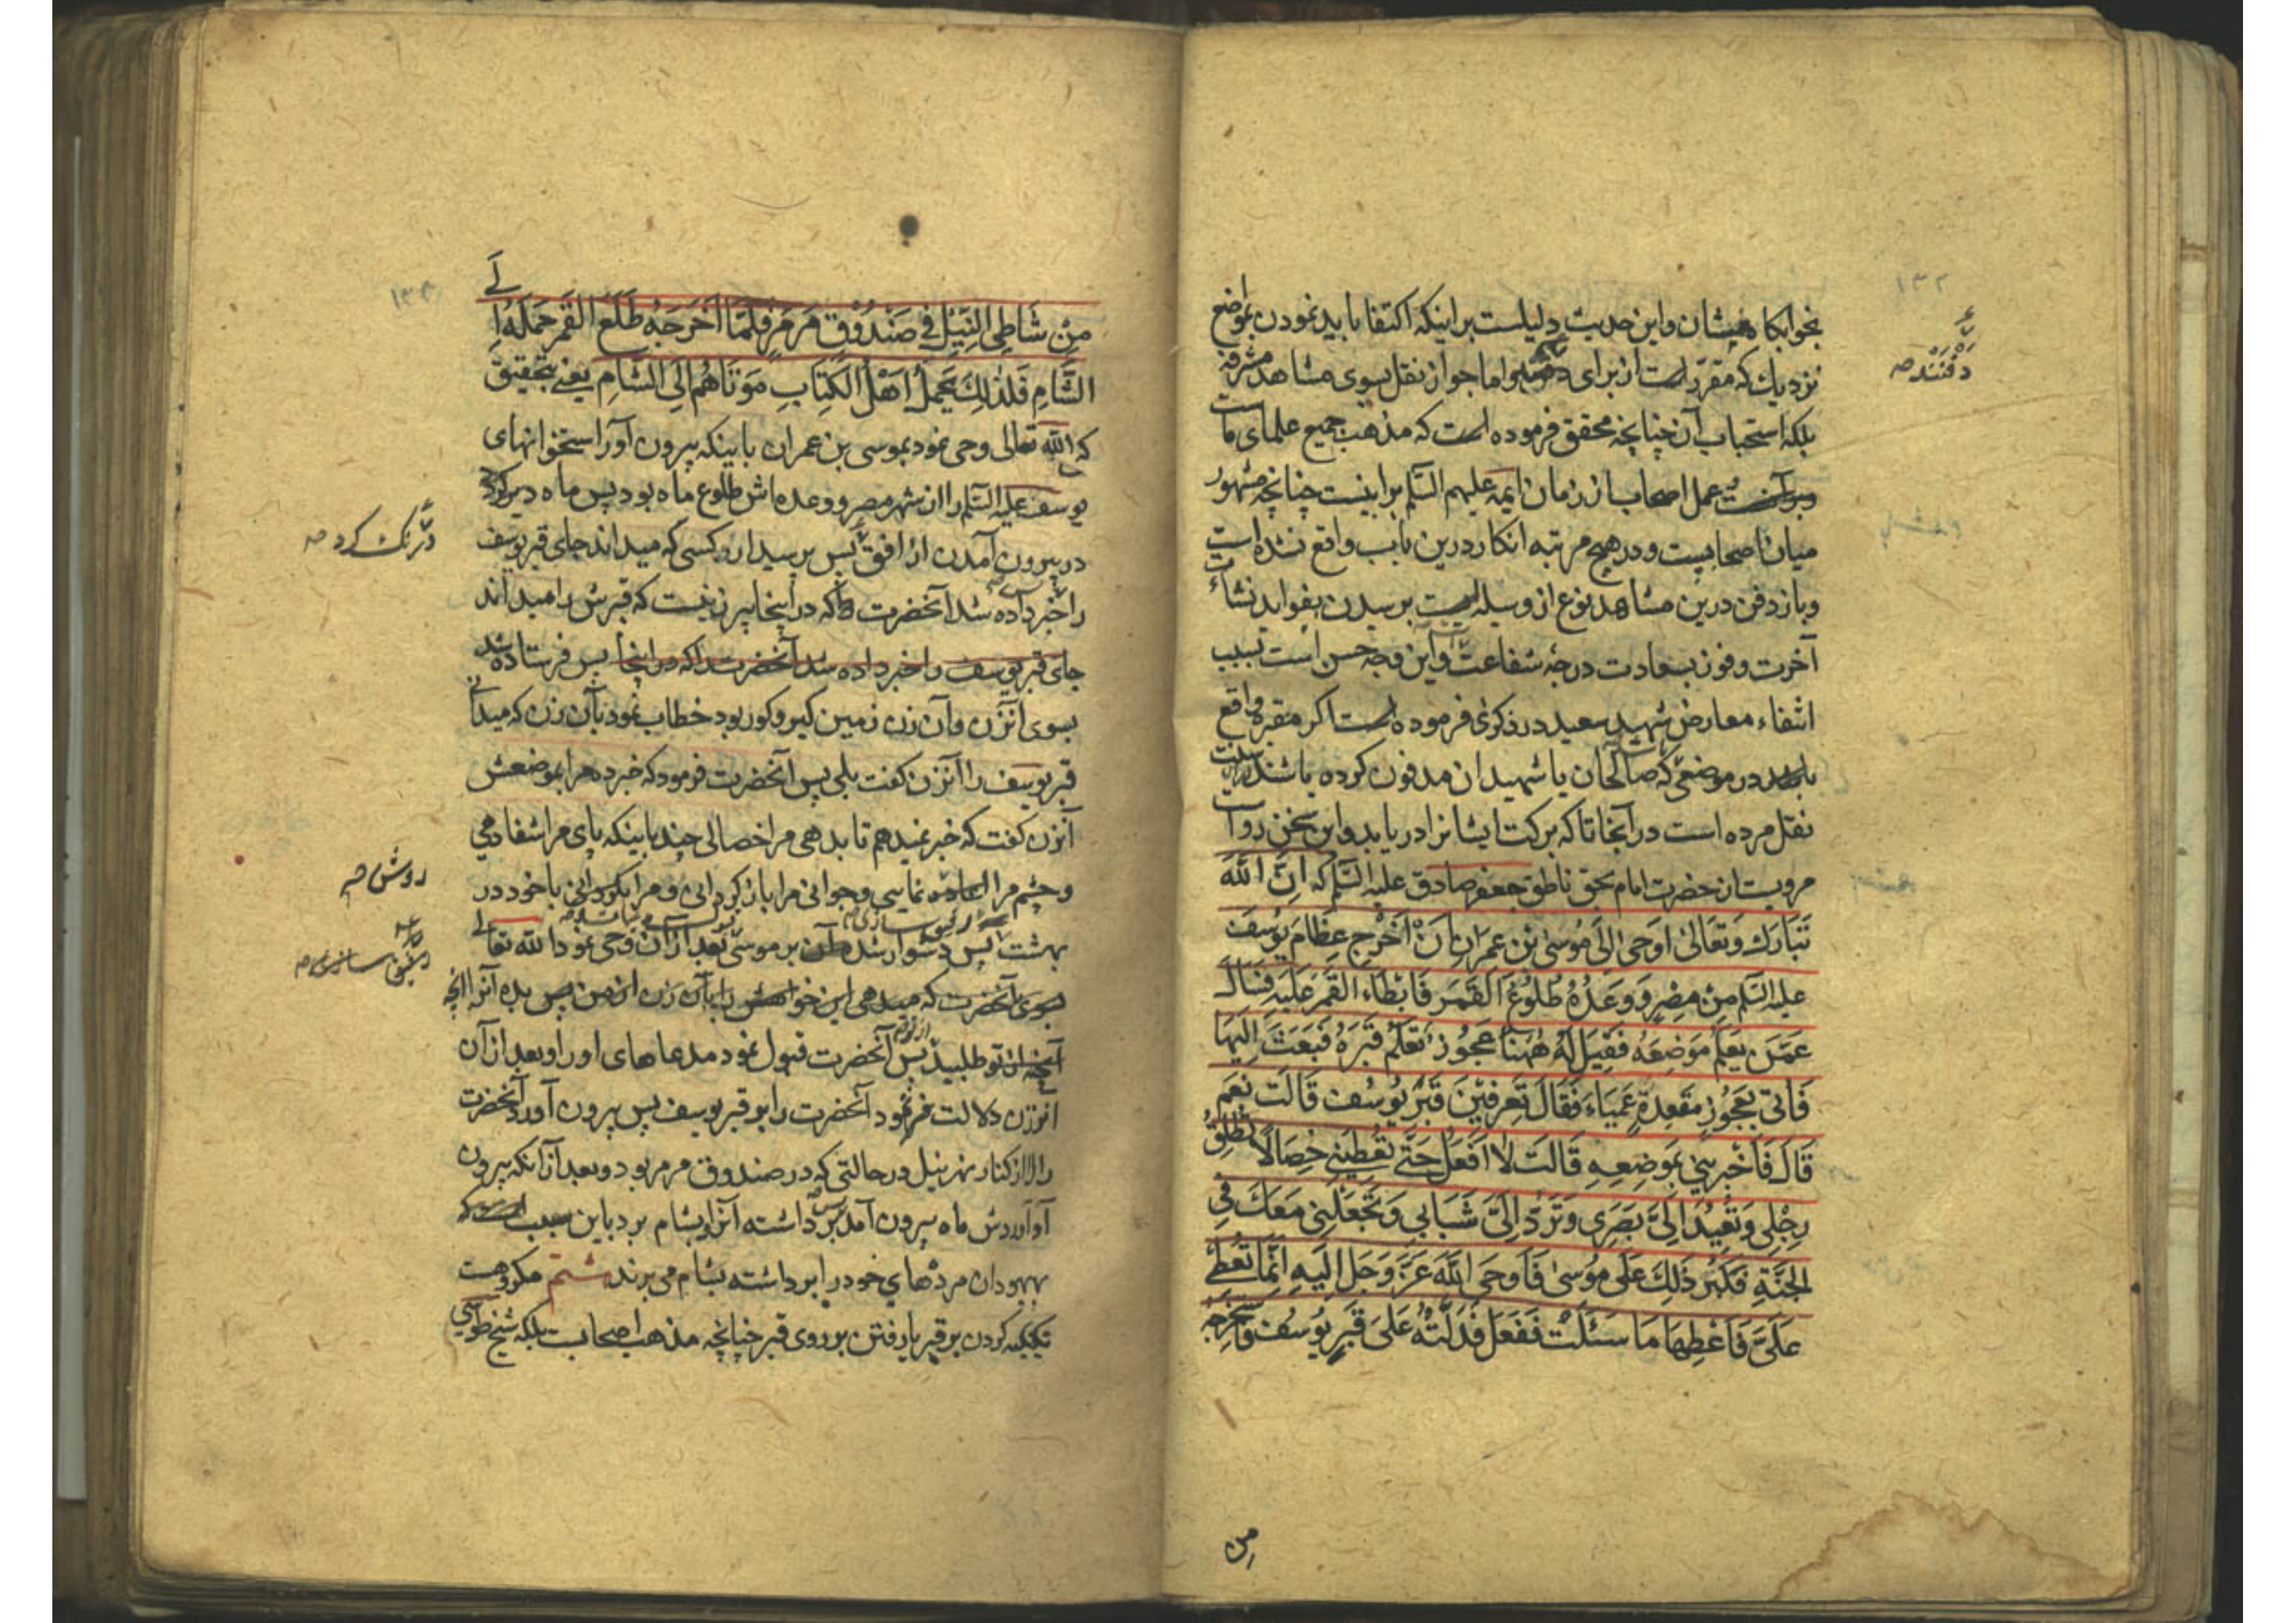 ۱۳۲
بخوابکاه هیشان واین حدیث دلیلست بر اینکه اکتفا باید نمودن بمواضع
نزدیك که مقرّر است از برای اما جواز نقل بسوی مشاهد مشرفه
دفنند صه
بلکه استحباب آن چنانچه محقق فرموده است که مذهب جمیع علمای ما است
عمل اصحاب از زمان ایمه علیهم السّلم براینست چنانچه مشهور
میان اصحابست و در هیچ مرتبه انکار درین باب واقع نشده است
وباز دفن درین مشاهد نوع از وسیله است برسیدن بفواید نشاءت
آخرت وفوز بسعادت درجهٔ شفاعت واین وجه حسن است بسبب
انتفاء معارض شهید سعید در ذکری فرموده است اکر مقبره واقع
باشد در موضعی که صالحان یا شهیدان مدفون کرده باشند
نقل مرده است در آنجا تا که برکت ایشانرا در یابد واین سخن رواست
مرویست از حضرت امام بحق ناطق جعفر صادق علیه السّلم که اِنَّ اللّٰهَ
تَبَارَكَ وَتَعَالىٰ اَوحىٰ اِلَى مُوسىٰ بْنِ عِمرَانِ اَنْ اَخْرِج عِظَامَ يُوسُفَ
علیه السّلم مِنْ مِصْرِ وَوَعَدُهُ طُلُوعُ القَمَرِ فَابْطَاءَ القَمَرُ عَلَيْهِ فَسَالَ
عَمَّنْ يَعْلَمُ مَوضِعَهُ فَقِيلَ لَهُ هٰهُنَا عَجُوزٌ تَعْلَمُ قَبَرَهُ فَبَعَثَ اِلَيهَا
فَاتىٰ بِعَجُوزٍ مُقعِدَةٍ عَمْيَاءَ فَقَالَ تَعْرِفِيْنَ قَبْرَ يُوسُفَ قَالَت نَعَم
قَالَ فَاَخْبِرِيْنِي بِمَوضِعِهِ قَالَت لَا اَفعَلُ حَتّٰى تُعْطِيَنِي خِصَالًا تُطْلِقُ
رِجْلِي وَتُعِيدُ اِلَىَّ بَصَرِي وَتَرُدَّ اِلَىَّ شَبَابِي وَتَجْعَلَنِي مَعَكَ فِي
الجَنَّةِ فَكَبُرَ ذَلِكَ عَلَى مُوسىٰ فَاَوحَى اللّٰهُ عَزَّ وَجَلَّ اِلَيهِ اِنَّمَا تُعْطِي
عَلَىَّ فَاَعْطِهَا مَا سَئَلَتْ فَفَعَلَ فَدَلَّتْهُ عَلىَ قَبَرِ يُوسُفَ فَاَخْرَجَهُ
مِن
۱۳۳
مِنْ شَاطِى النِّيْلِ فِي صَنْدُوْقٍ مَرْمَرٍ فَلَمَّا اَخْرَجَهُ طَلَعَ القَمَرُ حَمَلَهُ اِلَى
الشَّامِ فَلِذٰلِكَ يَحْمِلُ اَهْلُ الكِتَابِ مَوْتَاهُم اِلَى الشَّامِ یعنی بتحقیق
که اللّٰه تعالی وحی نمود بموسی بن عمران باینکه بیرون آور استخوانهای
یوسف علیه السّلم را از شهر مصر ووعده اش طلوع ماه بود پس ماه دیر کرد
درنك کرد صه
در بیرون آمدن از افق پس پرسید از کسی که میداند جای قبر یوسف
را خبر داده شد آنحضرت که در اینجا پیر زنیست که قبرش را میداند
جای قبر یوسف را خبر داده شد آنحضرت را که در اینجا پس فرستاده شد
بسوی آنزن وآن زن زمین کیر وکور بود خطاب نمود بآن زن که میدانی
قبر یوسف را آنزن کفت بلی پس آنحضرت فرمود که خبر ده مرا بموضعش
آنزن کفت که خبر نمیدهم تا بدهی مرا خصالی چند باینکه پای مرا شفا دهی
وچشم مرا نمایی وجوانی مرا باز کردانی ومرا بکردانی با خود در
روشن صه
بهشت پس دشوار شد بر موسی بعد از آن وحی نمود اللّٰه تعالی
آنحضرت که میدهی این خواهش را بآن زن از من پس بده آنرا آنچه
از تو طلبید پس آنحضرت قبول نمود مدعاهای او را وبعد از آن
آنزن دلالت نمود آنحضرت را بر قبر یوسف پس بیرون آورد آنحضرت
را از کنار نهر نیل در حالتی که در صندوق مرمر بود وبعد از آنکه بیرون
آوردش ماه بیرون آمد پس برداشته آنرا بشام برد باین سبب است که
یهودان مردهای خود را برداشته بشام می برند شتم مکروهست
تکیه کردن بر قبر یا رفتن بر روی قبر چنانچه مذهب اصحابست بلکه شیخ طوسی